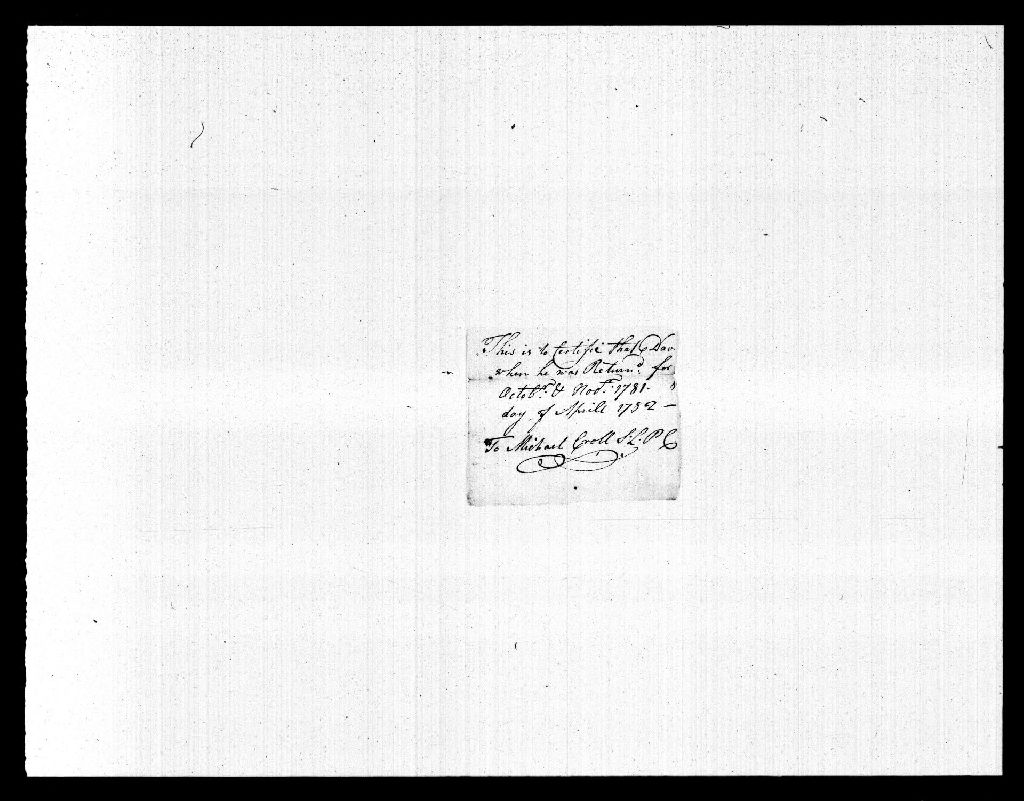 This is to Certifie that Dav
when he was Return'd for
Octobr. & Novr. 1781.
day of Aprill 1782 —
To Michael Croll S.L.P.C